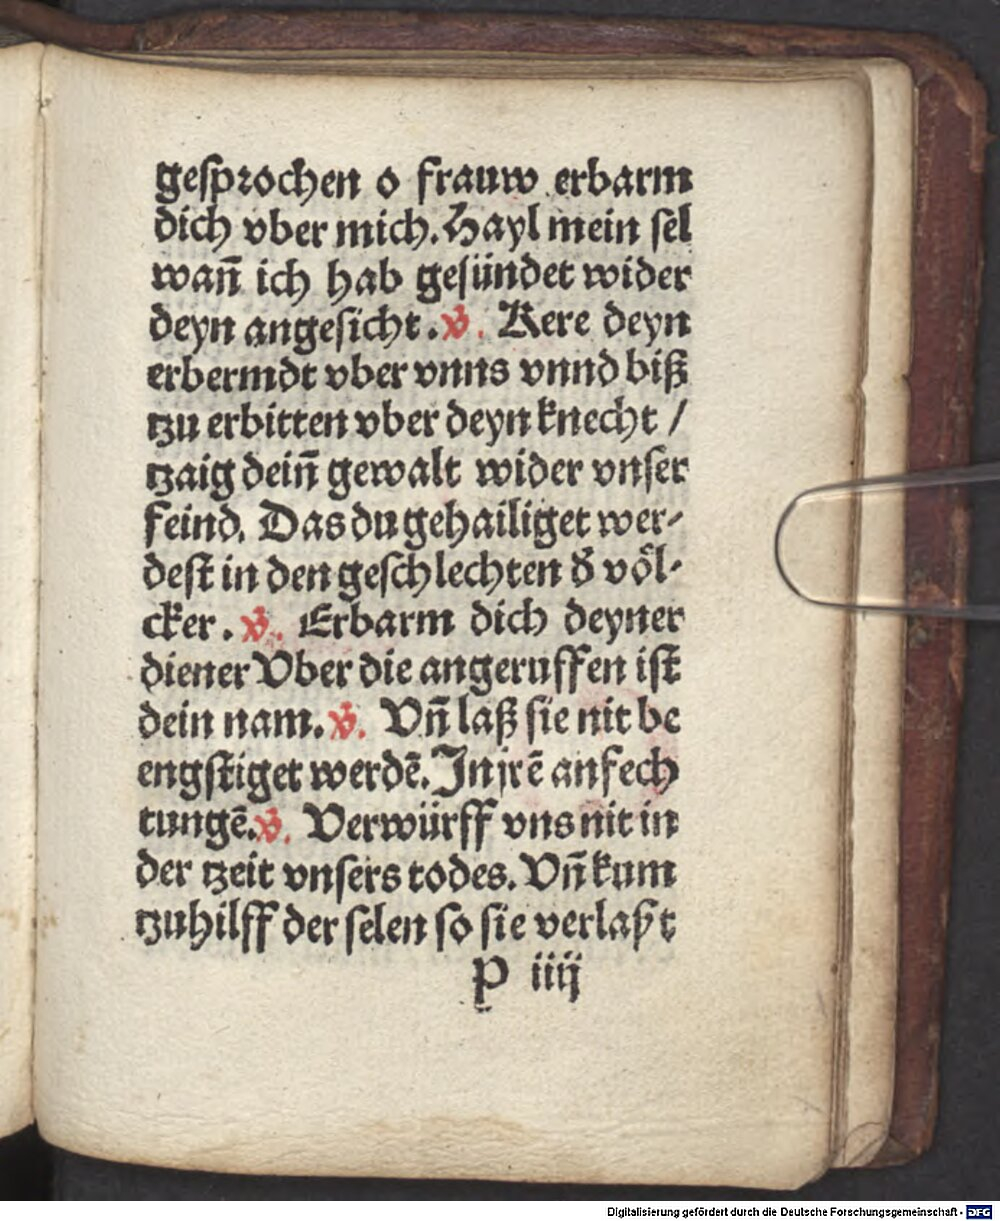 gesprochen o frauw erbarm
dich vber mich. Hayl mein sel
wañ ich hab gesündet wider
deyn angesicht. V̇. Kere deyn
erbermdt vber vnns vnnd biß
tzu erbitten vber deyn knecht /
tzaig deiñ gewalt wider vnser
feind. Das du gehailiget wer-
dest in den geschlechten d̕ völ-
cker. V̇. Erbarm dich deyner
diener Vber die angeruffen ist
dein nam. V̇. Vñ laß sie nit be
engstiget werdē. In jrē anfech
tungē. V̇. Verwürff vns nit in
der tzeit vnsers todes. Vñ kum
tzuhilff der selen so sie verlaßt
p iiij
Digitalisierung gefördert durch die Deutsche Forschungsgemeinschaft - DFG